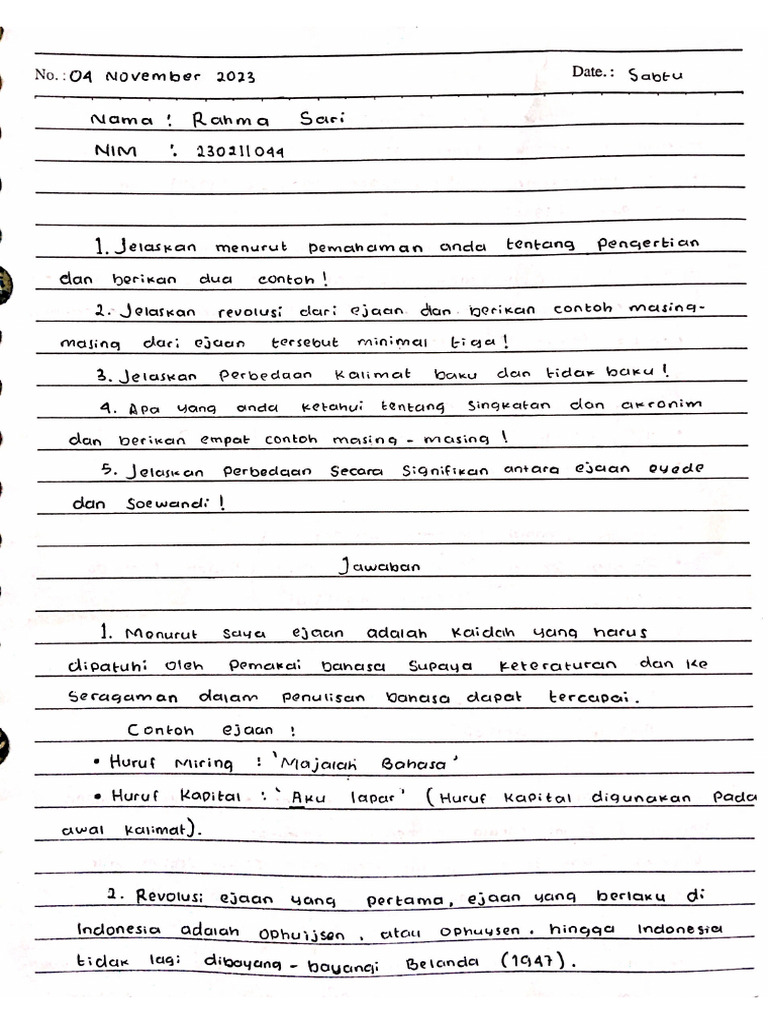 No.: 04 November 2023 Date.: Sabtu
Nama : Rahma Sari
NIM : 230211044
1. Jelaskan menurut pemahaman anda tentang pengertian
dan berikan dua contoh!
2. Jelaskan revolusi dari ejaan dan berikan contoh masing-
masing dari ejaan tersebut minimal tiga!
3. Jelaskan Perbedaan Kalimat baku dan tidak baku!
4. Apa yang anda ketahui tentang Singkatan dan akronim
dan berikan empat contoh masing-masing!
5. Jelaskan Perbedaan Secara Signifikan antara ejaan eyede
dan Soewandi!
Jawaban
1. Menurut saya ejaan adalah kaidah yang harus
dipatuhi oleh Pemakai bahasa Supaya keteraturan dan ke
Seragaman dalam penulisan bahasa dapat tercapai.
Contoh ejaan :
• Huruf Miring : 'Majalah Bahasa'
• Huruf Kapital : 'Aku lapar' (Huruf Kapital digunakan Pada
awal Kalimat).
2. Revolusi ejaan yang pertama, ejaan yang berlaku di
Indonesia adalah Ophuijsen, atau Ophuysen. hingga Indonesia
tidak lagi dibayang-bayangi Belanda (1947).